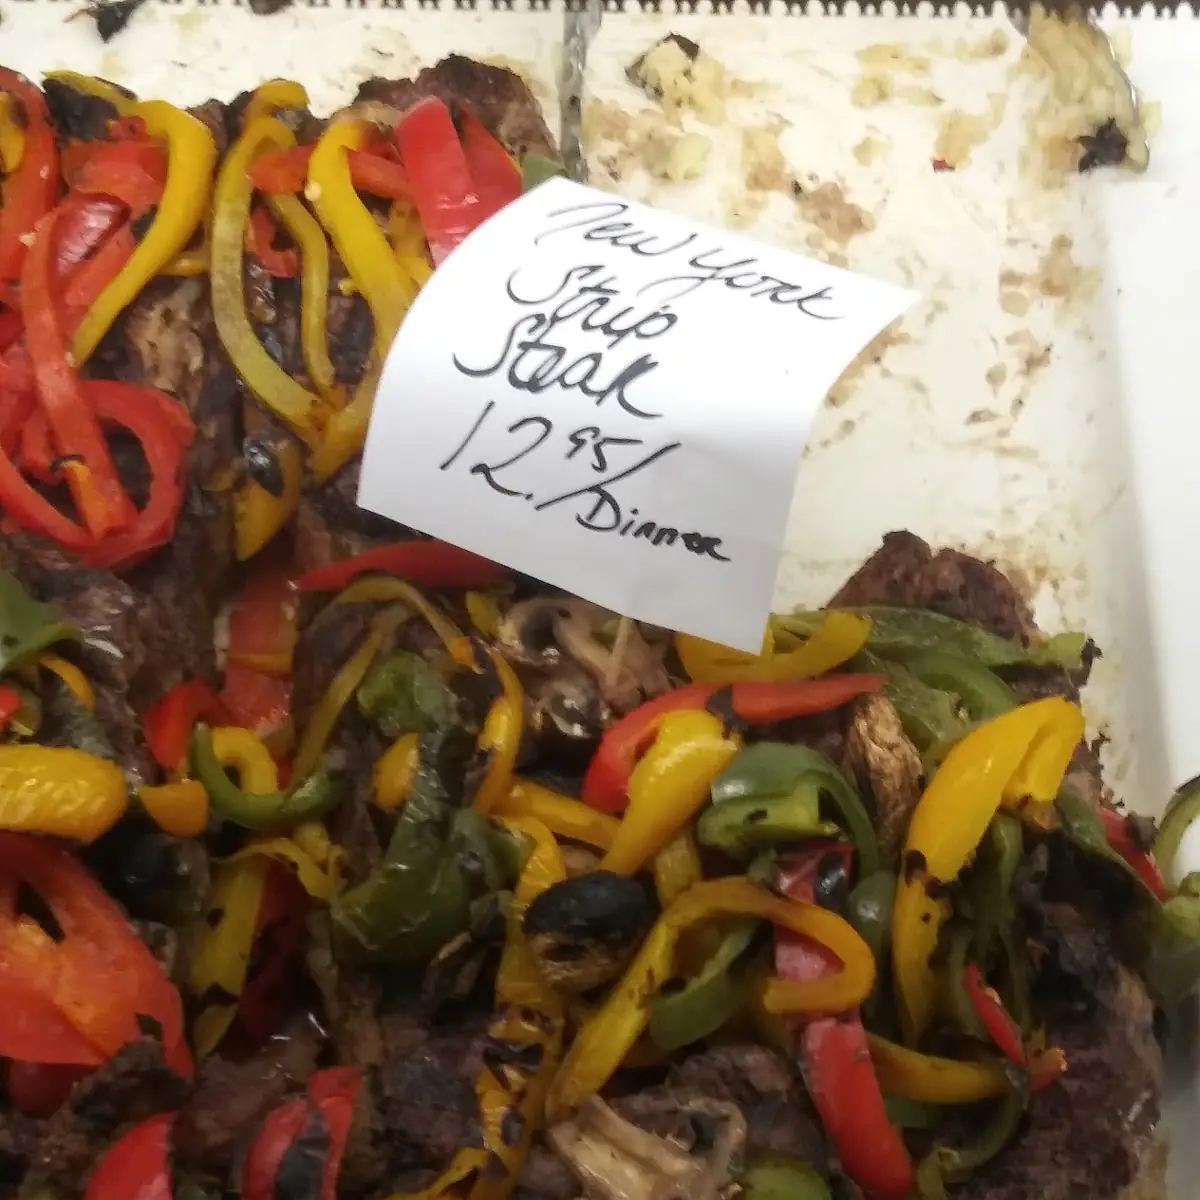 New York
Strip
Steak
12.95/Dinner